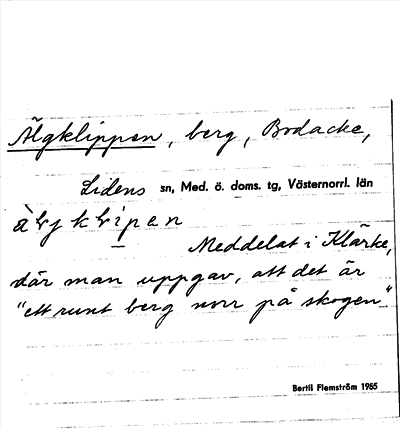 Älgklippen, berg, Bodacke,
Lidens sn, Med. ö. doms. tg, Västernorrl. län
Meddelat i Klärke,
där man uppgav, att det är
"ett runt berg norr på skogen"
Bertil Flemström 1965